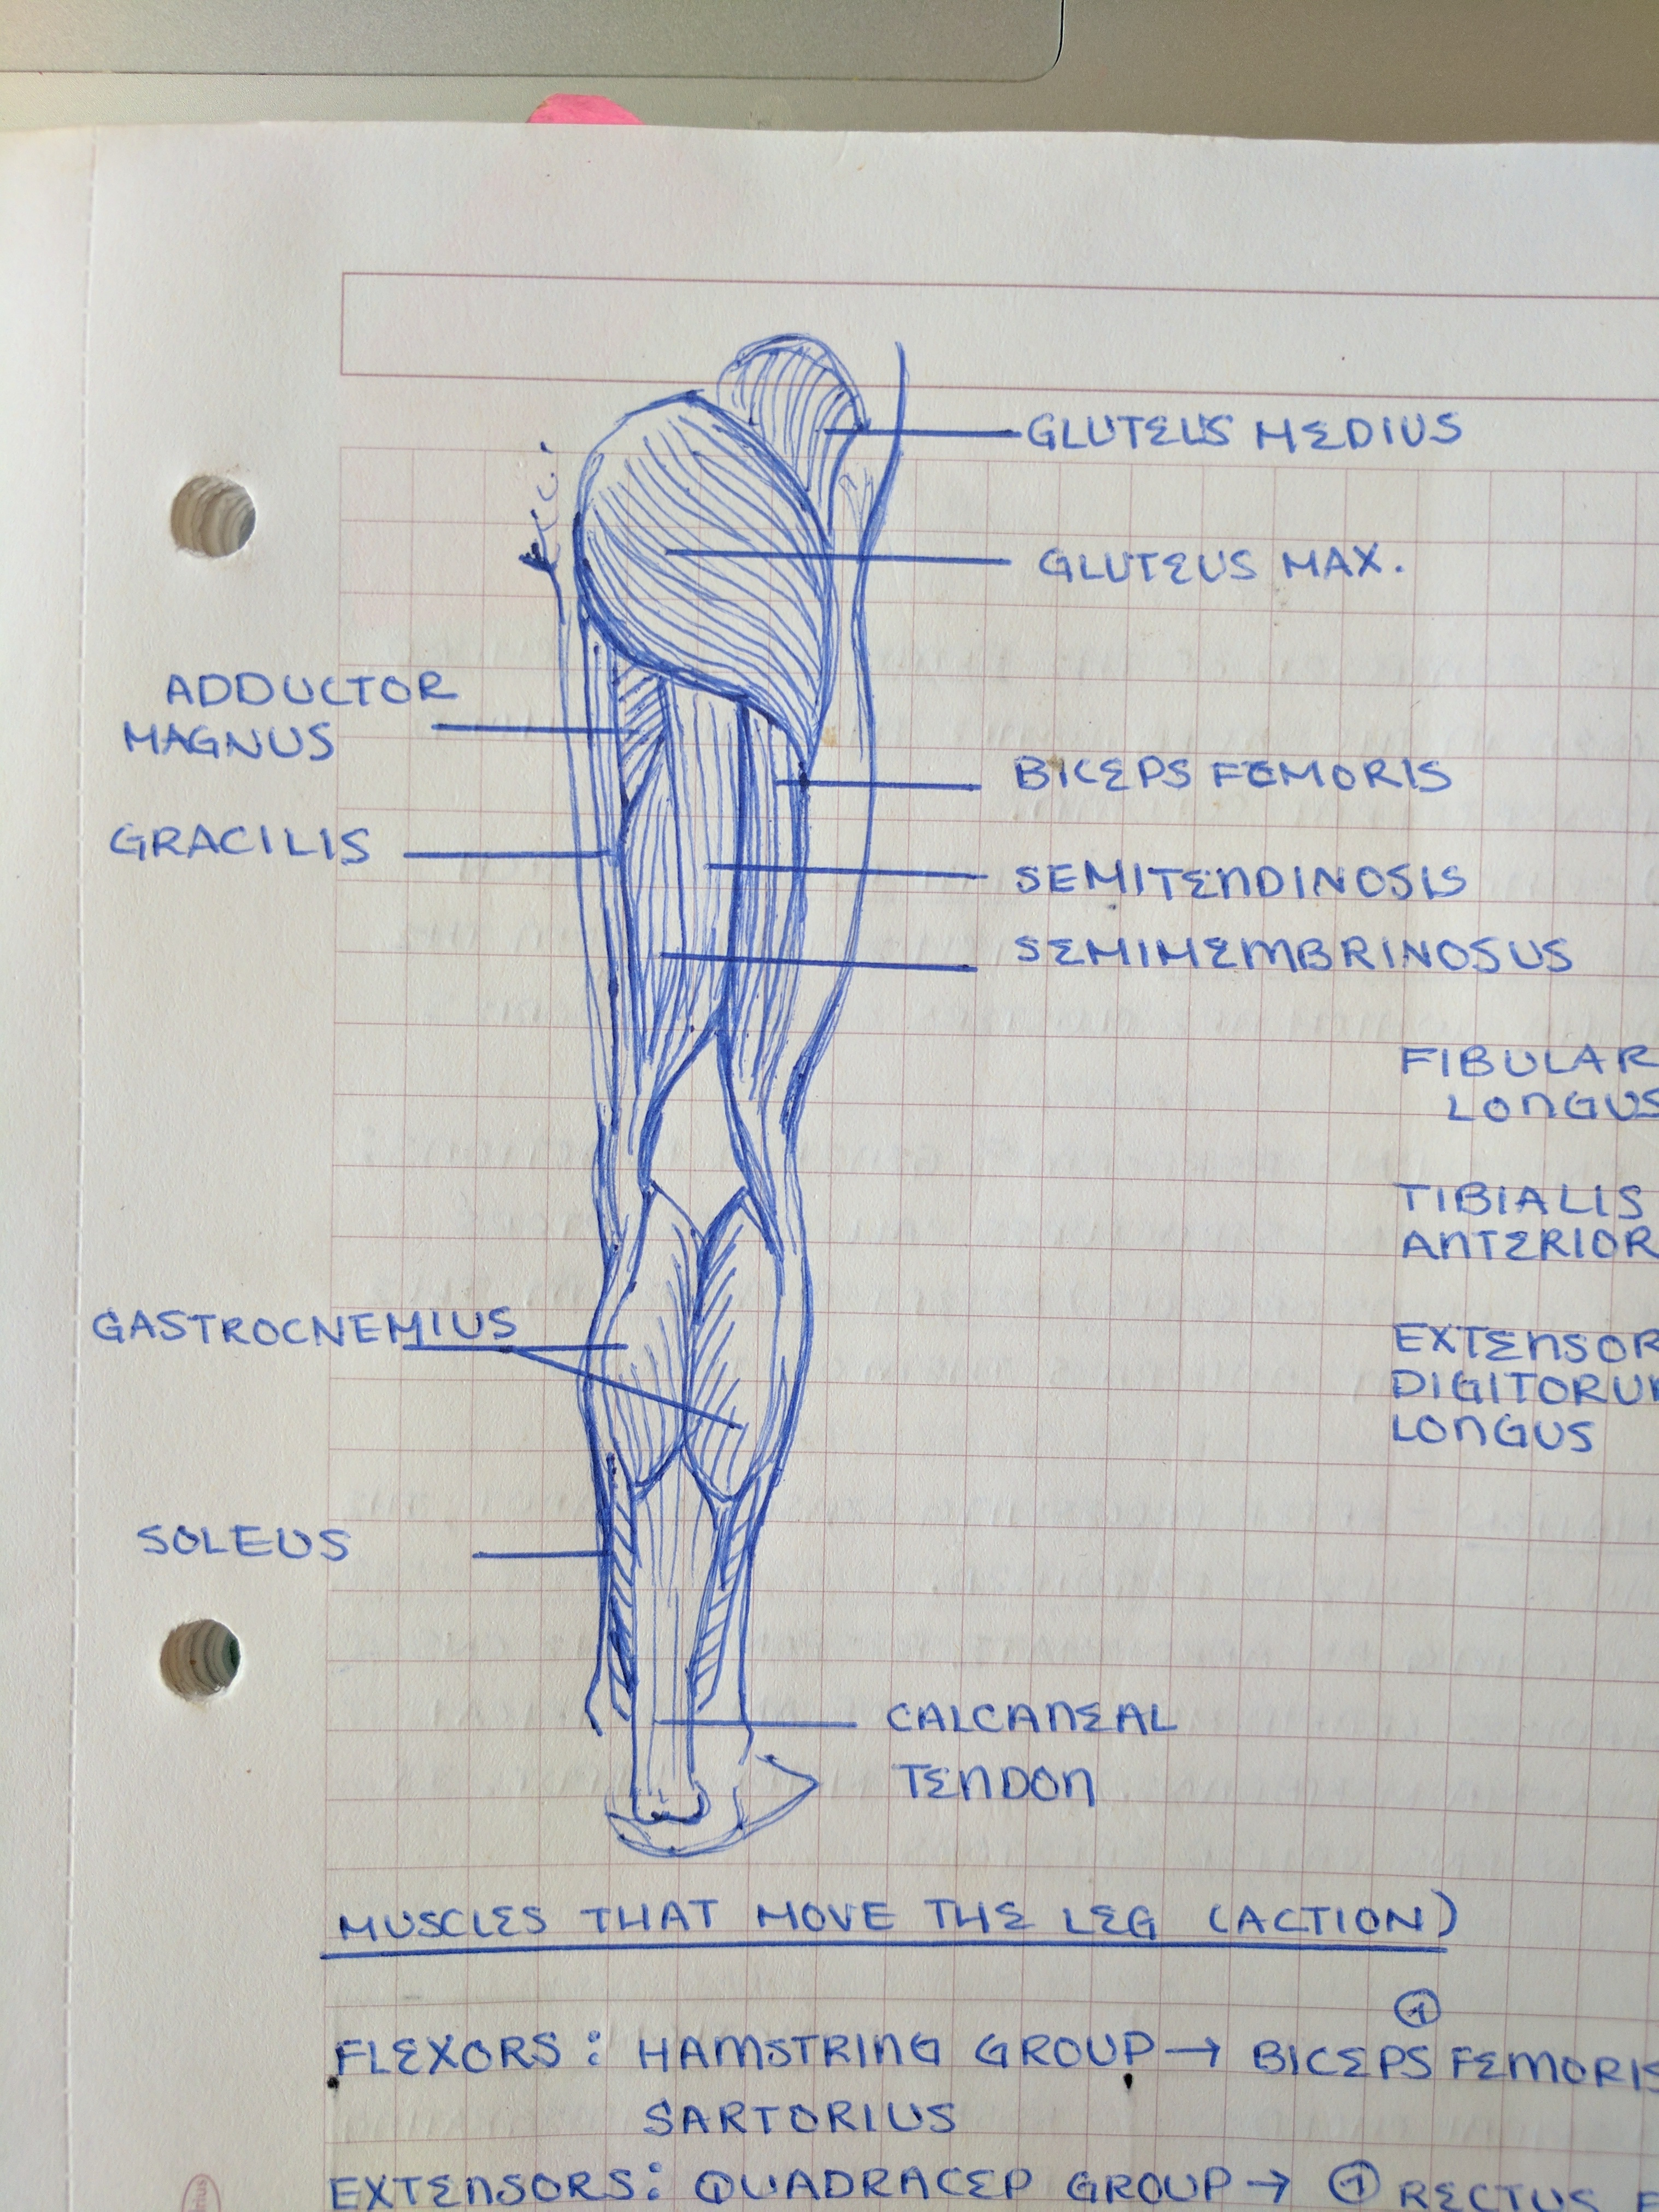 GLUTEUS MEDIUS
GLUTEUS MAX.
ADDUCTOR
MAGNUS
BICEPS FEMORIS
GRACILIS
SEMITENDINOSIS
SEMIMEMBRINOSUS
FIBULAR
LONGUS
TIBIALIS
ANTERIOR
GASTROCNEMIUS
EXTENSOR
DIGITORUM
LONGUS
SOLEUS
CALCANEAL
TENDON
MUSCLES THAT MOVE THE LEG (ACTION)
①
FLEXORS: HAMSTRING GROUP → BICEPS FEMORIS
SARTORIUS
EXTENSORS: QUADRACEP GROUP → ① RECTUS F